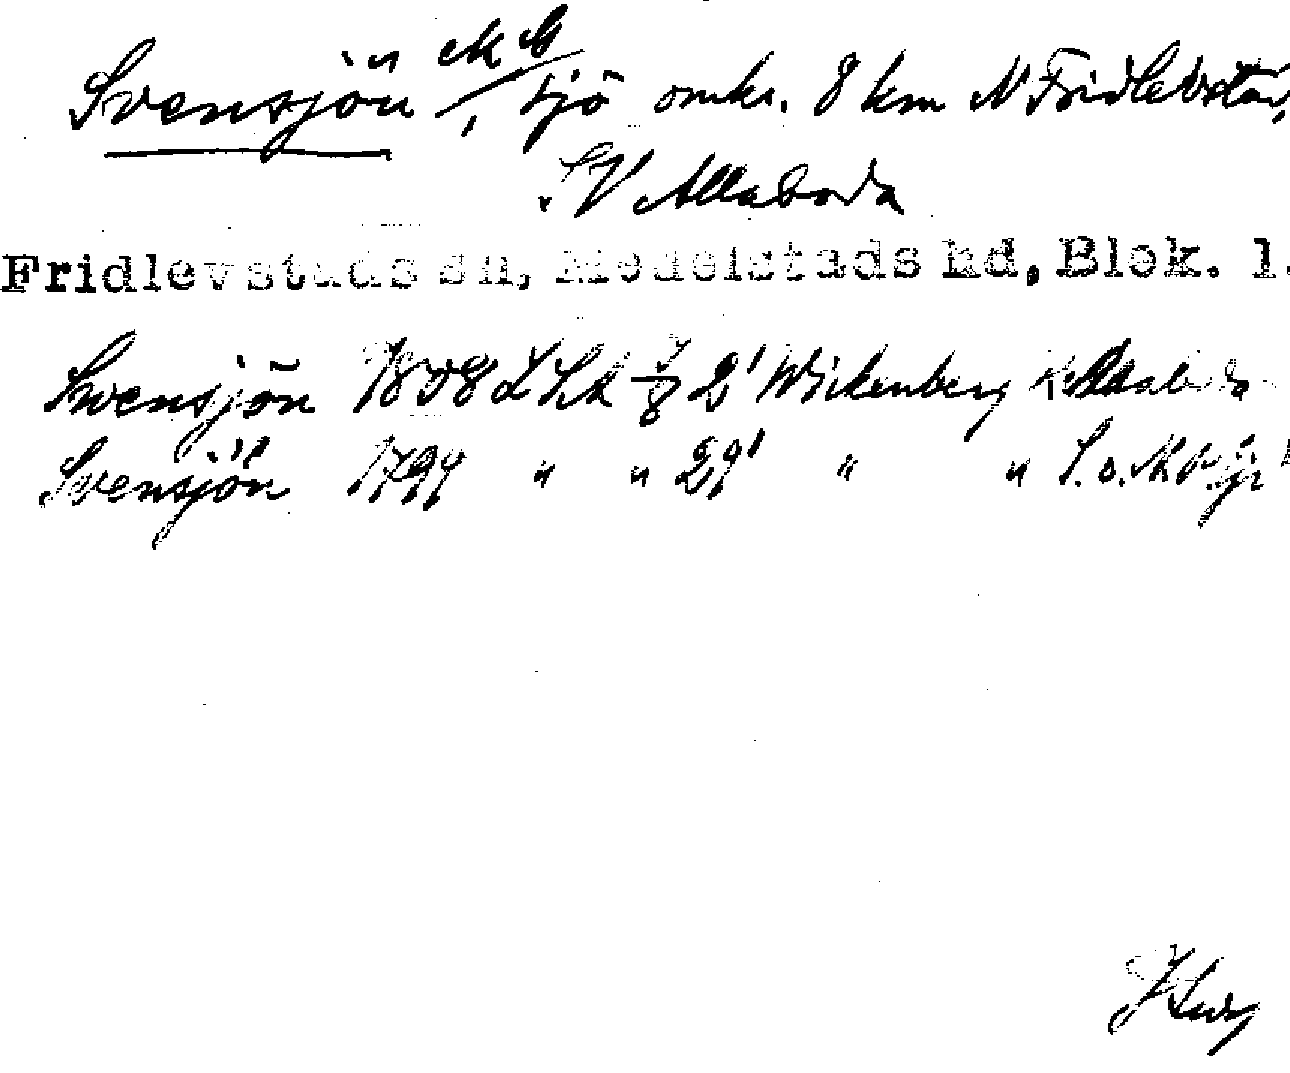 Svensjön, sjö omkr. 8 km N Fridlevstad,
SV Allaboda
Fridlevstads sn, Medelstads hd, Blek. l.
Svensjön 1808 LSA 2' Wickenberg Allaboda
Svensjön 1799 " " 29' " " S. o. N.